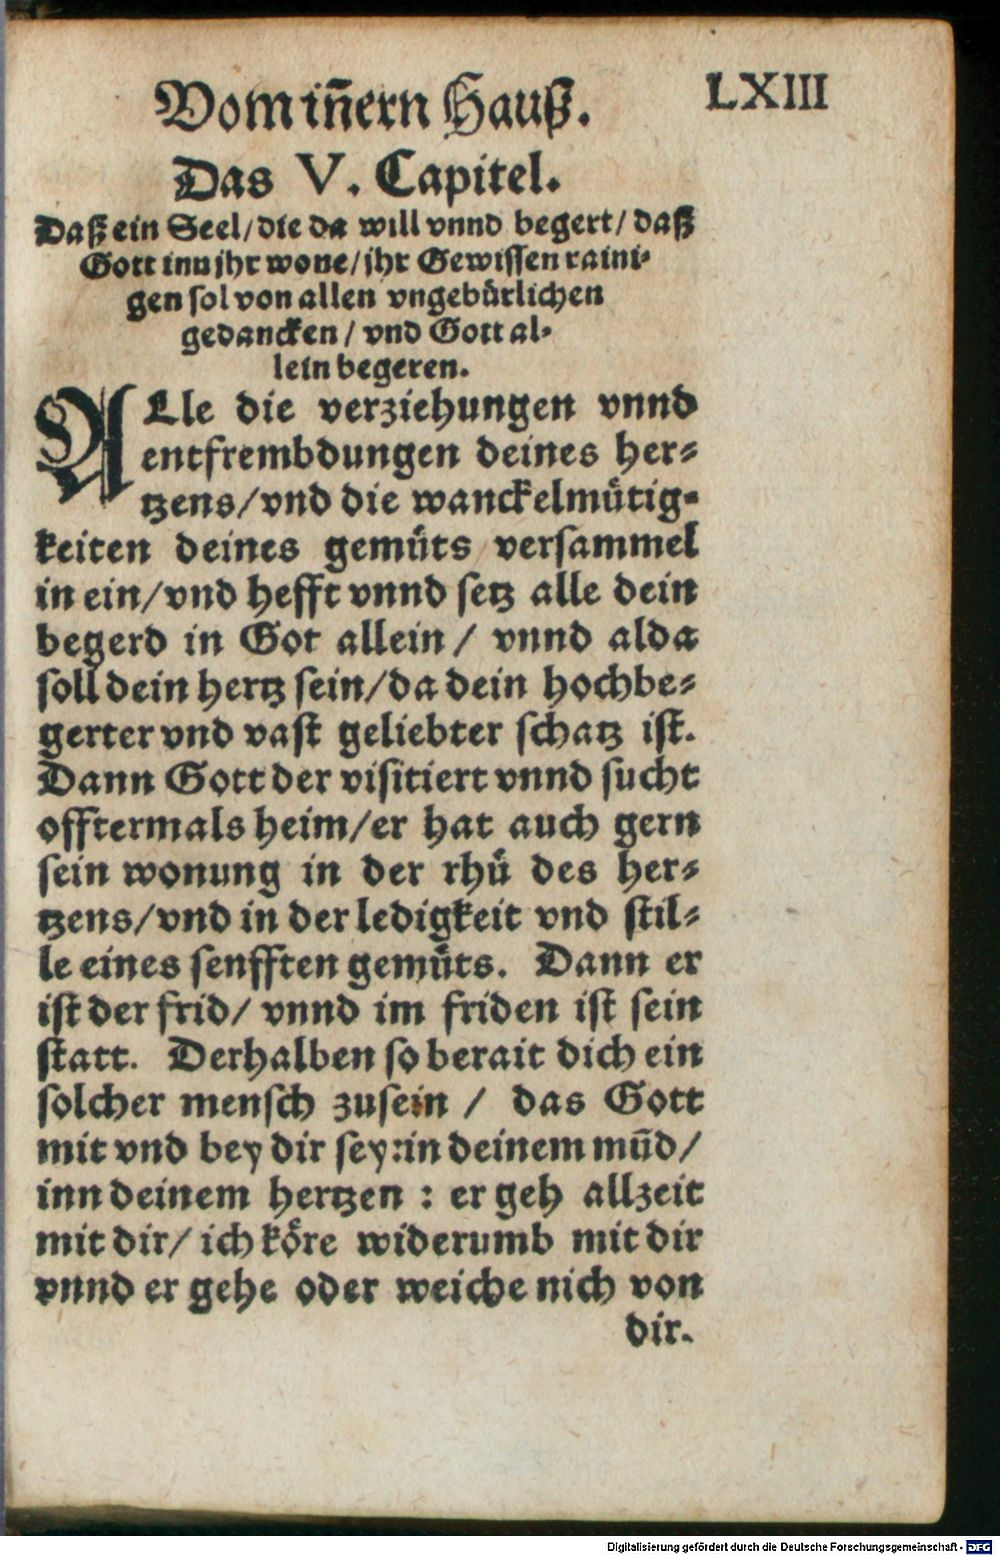 Vom iñern Hauß.
LXIII
Das V. Capitel.
Daß ein Seel/die da will vnnd begert/ daß
Gott inn jhr wone/jhr Gewissen raini-
gen sol von allen vngebürlichen
gedancken / vnd Gott al-
lein begeren.
ALle die verziehungen vnnd
entfrembdungen deines her-
tzens/vnd die wanckelmuͤtig-
keiten deines gemuͤts versammel
in ein/vnd hefft vnnd setz alle dein
begerd in Got allein / vnnd alda
soll dein hertz sein/da dein hochbe-
gerter vnd vast geliebter schatz ist.
Dann Gott der visitiert vnnd sucht
offtermals heim/er hat auch gern
sein wonung in der rhuͤ des her-
tzens/vnd in der ledigkeit vnd stil-
le eines senfften gemuͤts. Dann er
ist der frid/ vnnd im friden ist sein
statt. Derhalben so berait dich ein
solcher mensch zusein / das Gott
mit vnd bey dir sey:in deinem mūd/
inn deinem hertzen : er geh allzeit
mit dir/ ich koͤre widerumb mit dir
vnnd er gehe oder weiche nich von
dir.
Digitalisierung gefördert durch die Deutsche Forschungsgemeinschaft - DFG